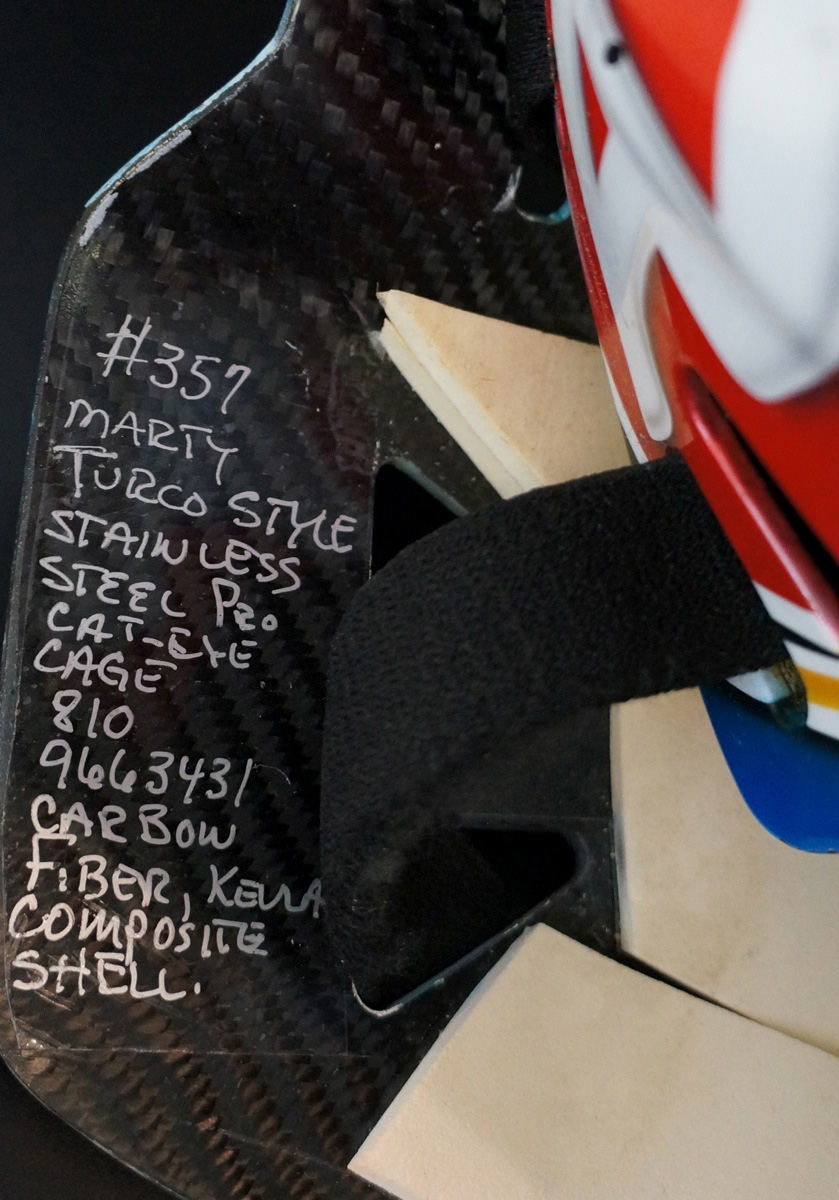 #357
MARTY
TURCO STYLE
STAINLESS
STEEL PRO
CAT-EYE
CAGE
810
9663431
CARBON
FIBER, KEVLA
COMPOSITE
SHELL.